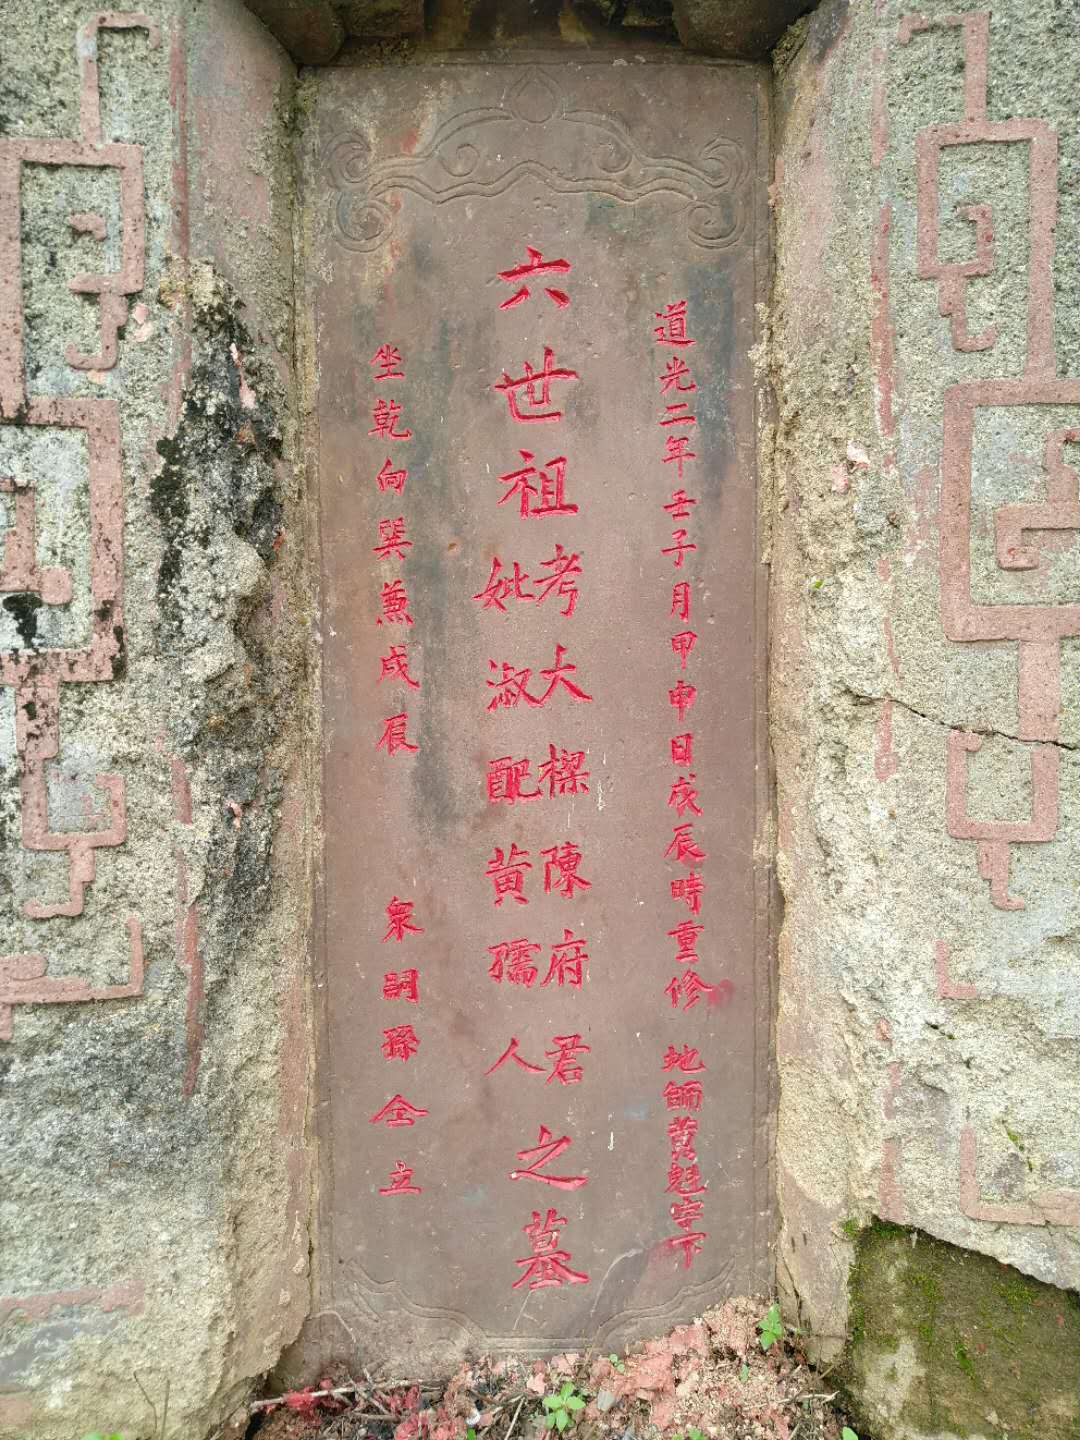 道光二年壬子月甲申日戊辰時重修 地師黄魁字下
六世祖
考大樑陳府君
妣淑配黄孺人
之墓
坐乾向巽兼戌辰
衆嗣孫仝立